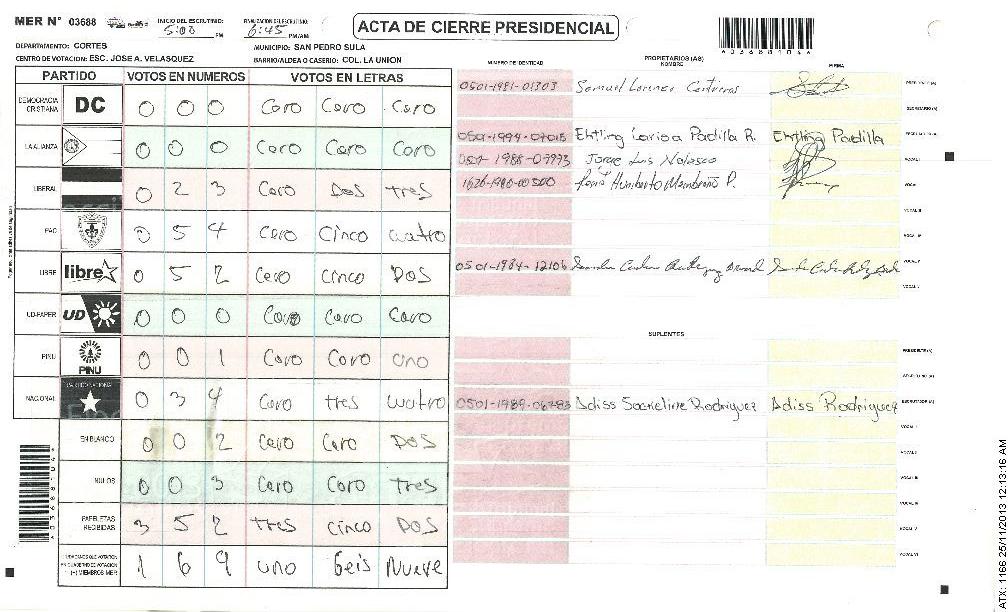 MER N° 03688
INICIO DEL ESCRUTINIO: 5:00 PM
FINALIZACION DEL ESCRUTINIO: 6:45 PM/AM
ACTA DE CIERRE PRESIDENCIAL
DEPARTAMENTO: CORTES
MUNICIPIO: SAN PEDRO SULA
CENTRO DE VOTACION: ESC. JOSE A. VELASQUEZ
BARRIO/ALDEA O CASERIO: COL. LA UNION
PARTIDO VOTOS EN NUMEROS VOTOS EN LETRAS
DEMOCRACIA CRISTIANA DC 0 0 0 Cero Cero Cero
LA ALIANZA 0 0 0 Cero Cero Cero
LIBERAL 0 2 3 Cero Dos tres
PAC 0 5 4 Cero Cinco cuatro
LIBRE libre 0 5 2 Cero cinco DOS
UD-FAPER UD 0 0 0 Cero Cero Cero
PINU PINU 0 0 1 Cero Cero uno
NACIONAL PARTIDO NACIONAL 0 3 4 Cero tres cuatro
EN BLANCO 0 0 2 Cero Cero DOS
NULOS 0 0 3 Cero Cero tres
PAPELETAS RECIBIDAS 3 5 2 tres cinco DOS
CIUDADANOS QUE VOTARON EN CUADERNO DE VOTACION (+) MIEMBROS MER 1 6 9 uno Seis Nueve
NUMERO DE IDENTIDAD PROPIETARIOS (AS) NOMBRE FIRMA
0501-1981-01303 Samuel PRESIDENTE (A)
SECRETARIO (A)
0501-1994-07015 Ehtling Larisa Padilla R. Ehtling Padilla ESCRUTADOR (A)
Jorge Luis Nolasco VOCAL I
1626-1980-00500 Humberto VOCAL II
VOCAL III
VOCAL IV
0501-1984-12106 VOCAL V
SUPLENTES
PRESIDENTE (A)
SECRETARIO (A)
0501-1989-06783 Adiss Rodriguez Adiss Rodriguez ESCRUTADOR (A)
VOCAL I
VOCAL II
VOCAL III
VOCAL IV
VOCAL V
VOCAL VI
ATX: 1166 25/11/2013 12:13:16 AM